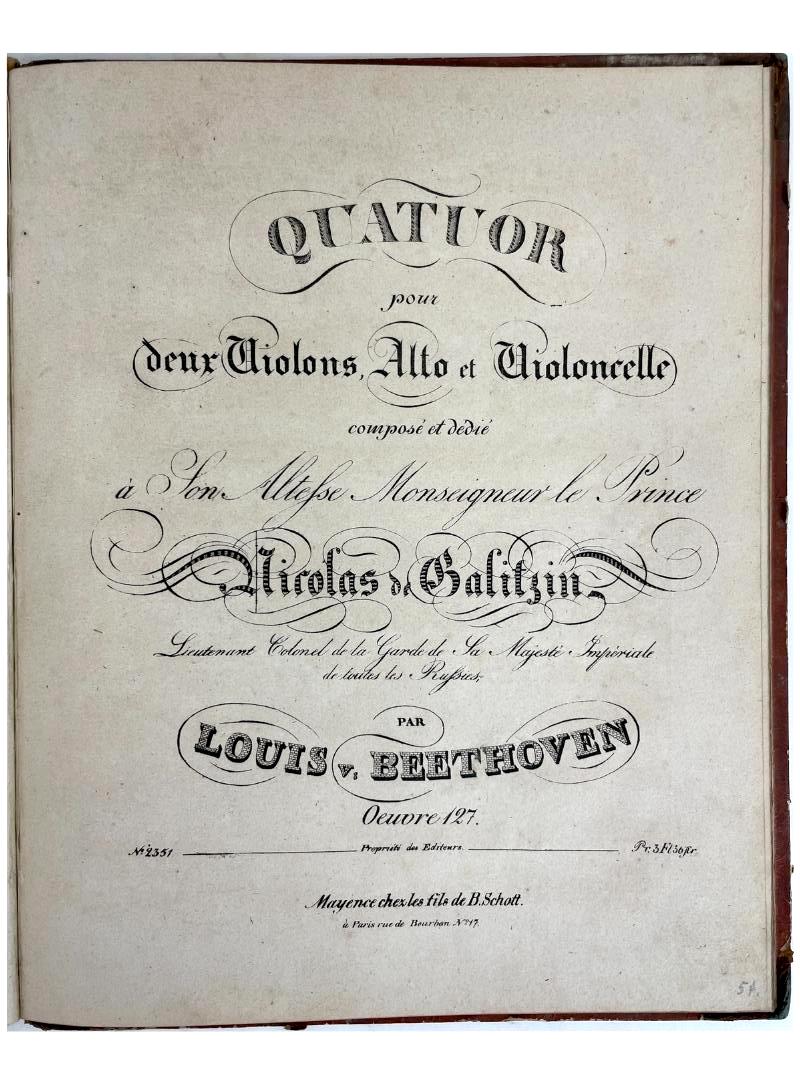 QUATUOR
pour
deux Violons, Alto et Violoncelle
composé et dédié
à Son Altesse Monseigneur le Prince
Nicolas de Galitzin
Lieutenant Colonel de la Garde de Sa Majesté Impériale
de toutes les Russies,
PAR
LOUIS v. BEETHOVEN
Oeuvre 127.
No. 2351 Propriété des Editeurs. Pr. 3 Fl 36 xr
Mayence chez les fils de B. Schott.
à Paris rue de Bourbon No. 17.